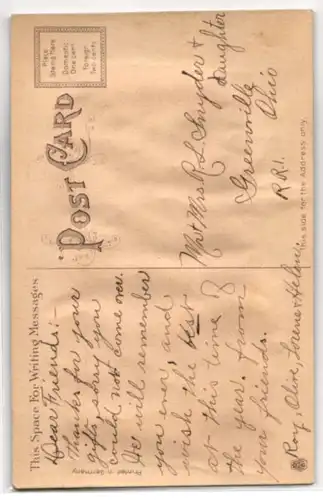 This Space For Writing Messages
Dear Friends:-
Thanks for your
gifts, sorry you
could not come over.
We will remember
you ever, and
wish the best
at this time of
the year. from
your friends.
Roy, Olive, Lorene & Helen.
Printed in Germany
POST CARD
Place
Stamp Here
Domestic
One cent
Foreign
Two cents
Mr & Mrs R. L. Snyder &
daughter
Greenville
Ohio
R R 1.
This side for the Address only.